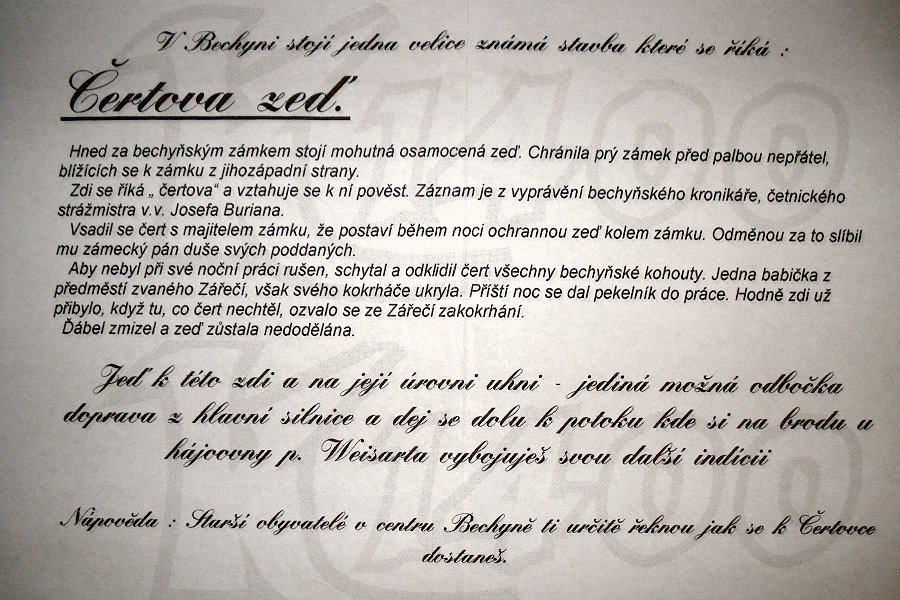 V Bechyni stojí jedna velice známá stavba které se říká :
Čertova zeď.
Hned za bechyňským zámkem stojí mohutná osamocená zeď. Chránila prý zámek před palbou nepřátel,
blížících se k zámku z jihozápadní strany.
Zdi se říká „ čertova“ a vztahuje se k ní pověst. Záznam je z vyprávění bechyňského kronikáře, četnického
strážmistra v.v. Josefa Buriana.
Vsadil se čert s majitelem zámku, že postaví během noci ochrannou zeď kolem zámku. Odměnou za to slíbil
mu zámecký pán duše svých poddaných.
Aby nebyl při své noční práci rušen, schytal a odklidil čert všechny bechyňské kohouty. Jedna babička z
předměstí zvaného Zářečí, však svého kokrháče ukryla. Příští noc se dal pekelník do práce. Hodně zdi už
přibylo, když tu, co čert nechtěl, ozvalo se ze Zářečí zakokrhání.
Ďábel zmizel a zeď zůstala nedodělána.
Jeď k této zdi a na její úrovni uhni - jediná možná odbočka
doprava z hlavní silnice a dej se dolu k potoku kde si na brodu u
hájcovny p. Weisarta vybojuješ svou další indícii
Nápověda : Starší obyvatelé v centru Bechyně ti určitě řeknou jak se k Čertovce
dostaneš.